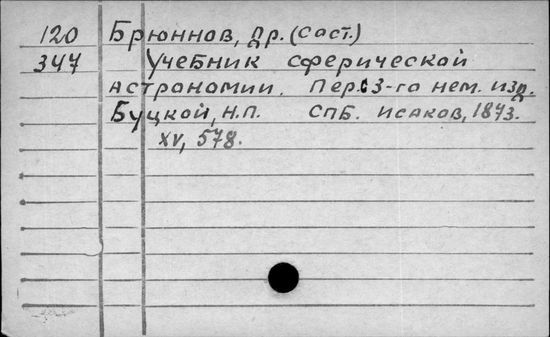 120 Брюннов, Др. (Сост.)
347 Учебник сферической
астрономии. Пер. с 3-го нем. изд.
Буцкой, Н.П. СПБ. Исаков, 1873.
XV, 578.